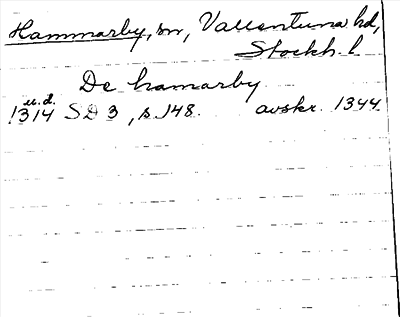 Hammarby, sn, Vallentuna hd,
Stockh. l.
De hamarby
u.d.
1314 SD 3, s. 148. avskr. 1344